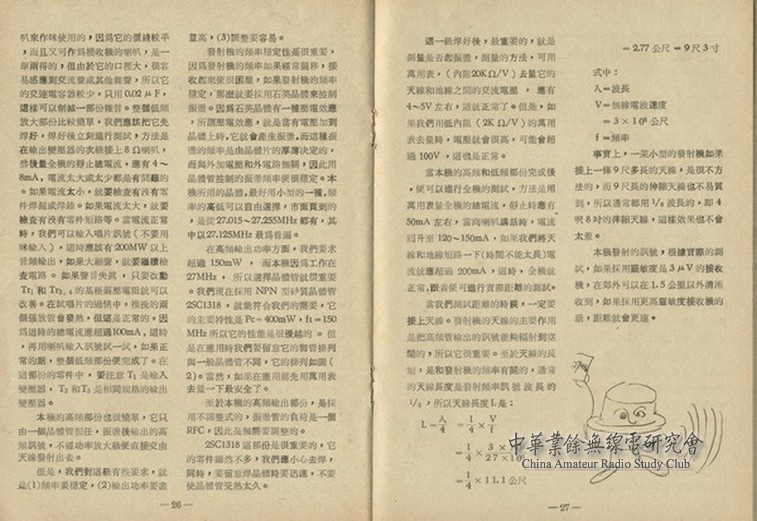 叭來作咪使用的，因爲它的價錢較平
，而且又可作爲接收機的喇叭，是一
舉兩得的，但由於它的口徑大，很容
易感應到交流聲或其他雜聲，所以它
的交連電容器較少，只用0.02μF，
這樣可以削減一部份雜音。整個低頻
放大部份比較簡單，我們應該把它先
焊好，焊好後立刻進行測試，方法是
在輸出變壓器的次級接上8Ω喇叭，
然後量全機的靜止總電流，應有4～
8mA，電流太大或太少都是有問題的
。如果電流太小，就要檢查有沒有零
件焊錯或焊錯。如果電流太大，就要
檢查有沒有零件短路等。當電流正常
時，我們可以輸入唱片訊號（不要用
咪輸入），這時應該有200MW以上
音頻輸出，如果大細聲，就要繼續檢
查電路。如果聲音失眞，只要改動
的基極偏壓電阻就可以
改善。在試唱片的過情中，推挽的兩
個强放管會發熱，但這是正常的，因
爲這時的總電流應超過100mA，這時
，再用喇叭輸入訊號試一試，如果正
常的話，整個低頻部份便完成了。在
這部份的零件中，要注意T₁是輸入
變壓器，T₂和T₃是相同規格的輸出
變壓器。
本機的高頻部份也很簡單，它只
由一個晶體管担任，振盪後輸出的高
頻訊號，不經功率放大級便直接交由
天線發射出去。
但是，我們對這級有些要求，就
是(1)頻率要穩定，(2)輸出功率要盡
量高，(3)調整要容易。
發射機的頻率穩定性是很重要，
因爲發射機的頻率如果經常偏移，接
收起來便很困難，如果發射機的頻率
穩定，那麼就要採用石英晶體來控制
振盪。因爲石英晶體有一種壓電效應
，所謂壓電效應，就是當有電壓加到
晶體上時，它就會產生振盪，而這種振
盪的頻率是由晶體片的厚薄决定的，
而與外加電壓和外電路無關，因此用
晶體管控制的振盪頻率便很穩定。本
機所用的晶體，最好用小型的一種，頻
率的高低可以自由選擇，市面買到的
，是從27.015～27.255MHz都有，其
中以27.125MHz最爲普遍。
在高頻輸出功率方面，我們要求
超過150mW，而本機因爲工作在
27MHz，所以選擇晶體管就很重要
。我們現在採用NPN型矽質晶體管
2SC1318，就能符合我們的需要，它
的主要特性是Pc=400mW，ft=150
MHz所以它的性能是很優越的。但
是在應用時我們要留意它的脚管排列
與一般晶體管不同，它的排列如圖(
2)。當然，如果在應用前先用萬用表
去量一下最安全了。
至於本機的高頻輸出部份，是採
用不調整式的，振盪管的負荷是一個
RFC，因此是無需要調整的。
2SC1318這部份是很重要的，它
的零件雖然不多，我們應小心去焊，
同時，要留意焊晶體時要迅速，不要
使晶體管受熱太久。
—26—
這一級焊好後，最重要的，就是
測量是否起振盪，測量的方法，可用
萬用表，(內阻20KΩ/V)去量它的
天線和地線之間的交流電壓，應有
4～5V左右，這就正常了。但是，如
果我們用低內阻(2KΩ/V)的萬用
表去量時，電壓就會很高，可能會超
過100V，這也是正常。
當本機的高頻和低頻部份完成後
，便可以進行全機的測試，方法是用
萬用表量全機的總電流，靜止時應有
50mA左右，當向喇叭講話時，電流
囘升至120～150mA，如果我們將天
線和地線短路一下(時間不能太長)電
流就應超過200mA，這時，全機就
正常，跟着便可進行實際距離的測試。
當我們測試距離的時候，一定要
接上天線。發射機的天線的主要作用
是把高頻管輸出的訊號能夠輻射到空
間的，所以它很重要。至於天線的長
短，是和發射機的頻率有關的，通常
的天線長度是發射頻率訊號波長的
¼，所以天線長度L是：
L=λ/4 =1/4×V/f
=1/4×3×10/27×10
=1/4×11.1公尺
=2.77公尺=9尺3寸
式中：
λ=波長
V=無線電波速度
=3×10⁸公尺
f=頻率
事實上，一架小型的發射機如果
接上一條9尺多長的天線，是很不方
法的，而9尺長的伸縮天線也不易買
到，所以通常都用⅛波長的，即4
呎8吋的伸縮天線，這樣效果也不會
太差。
本機發射的訊號，根據實際的測
試，如果採用靈敏度是3μV的接收
機，在郊外可以在1.5公里以外清晰
收到，如果採用更高靈敏度接收機的
話，距離就會更遠。
中華業餘無線電研究會
China Amateur Radio Study Club
—27—